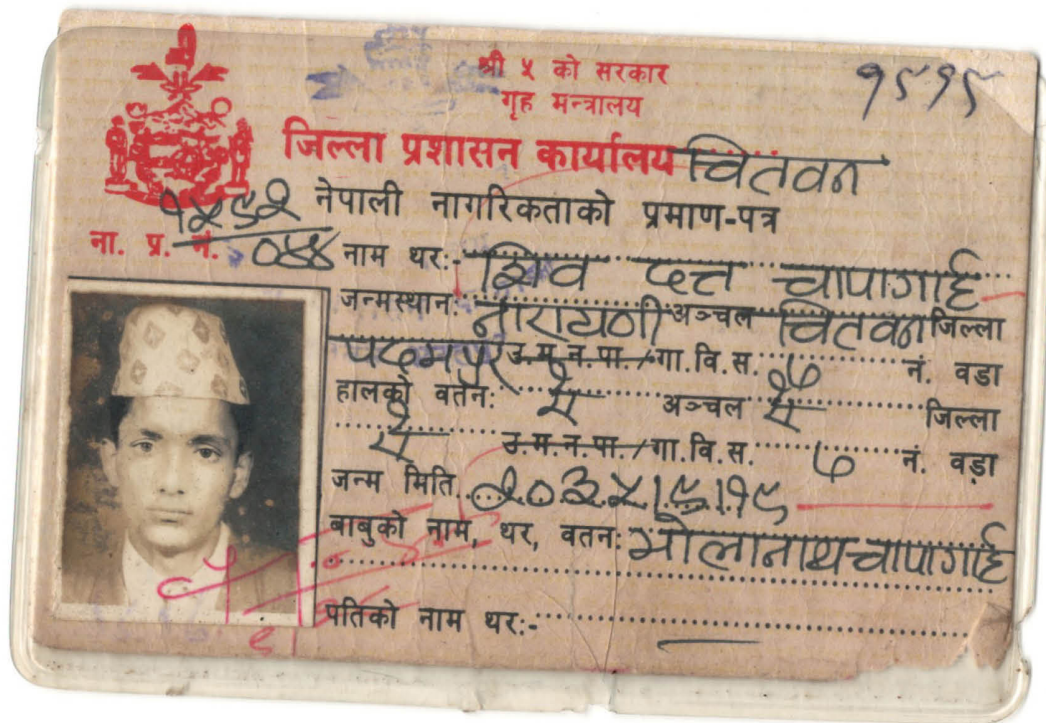 श्री ५ को सरकार
गृह मन्त्रालय
१९१९
जिल्ला प्रशासन कार्यालय चितवन
नेपाली नागरिकताको प्रमाण-पत्र
ना. प्र. नं.
नाम थर:- शिव दत्त चापागाई
जन्मस्थान: नारायणी अञ्चल चितवन जिल्ला
पदमपुर उ.म.न.पा./गा.वि.स. ७ नं. वडा
हालको वतन: ऐ अञ्चल ऐ जिल्ला
ऐ उ.म.न.पा./गा.वि.स. ७ नं. वडा
जन्म मिति २०३५।९।१९
बाबुको नाम, थर, वतन: भोलानाथ चापागाई
पतिको नाम थर:-